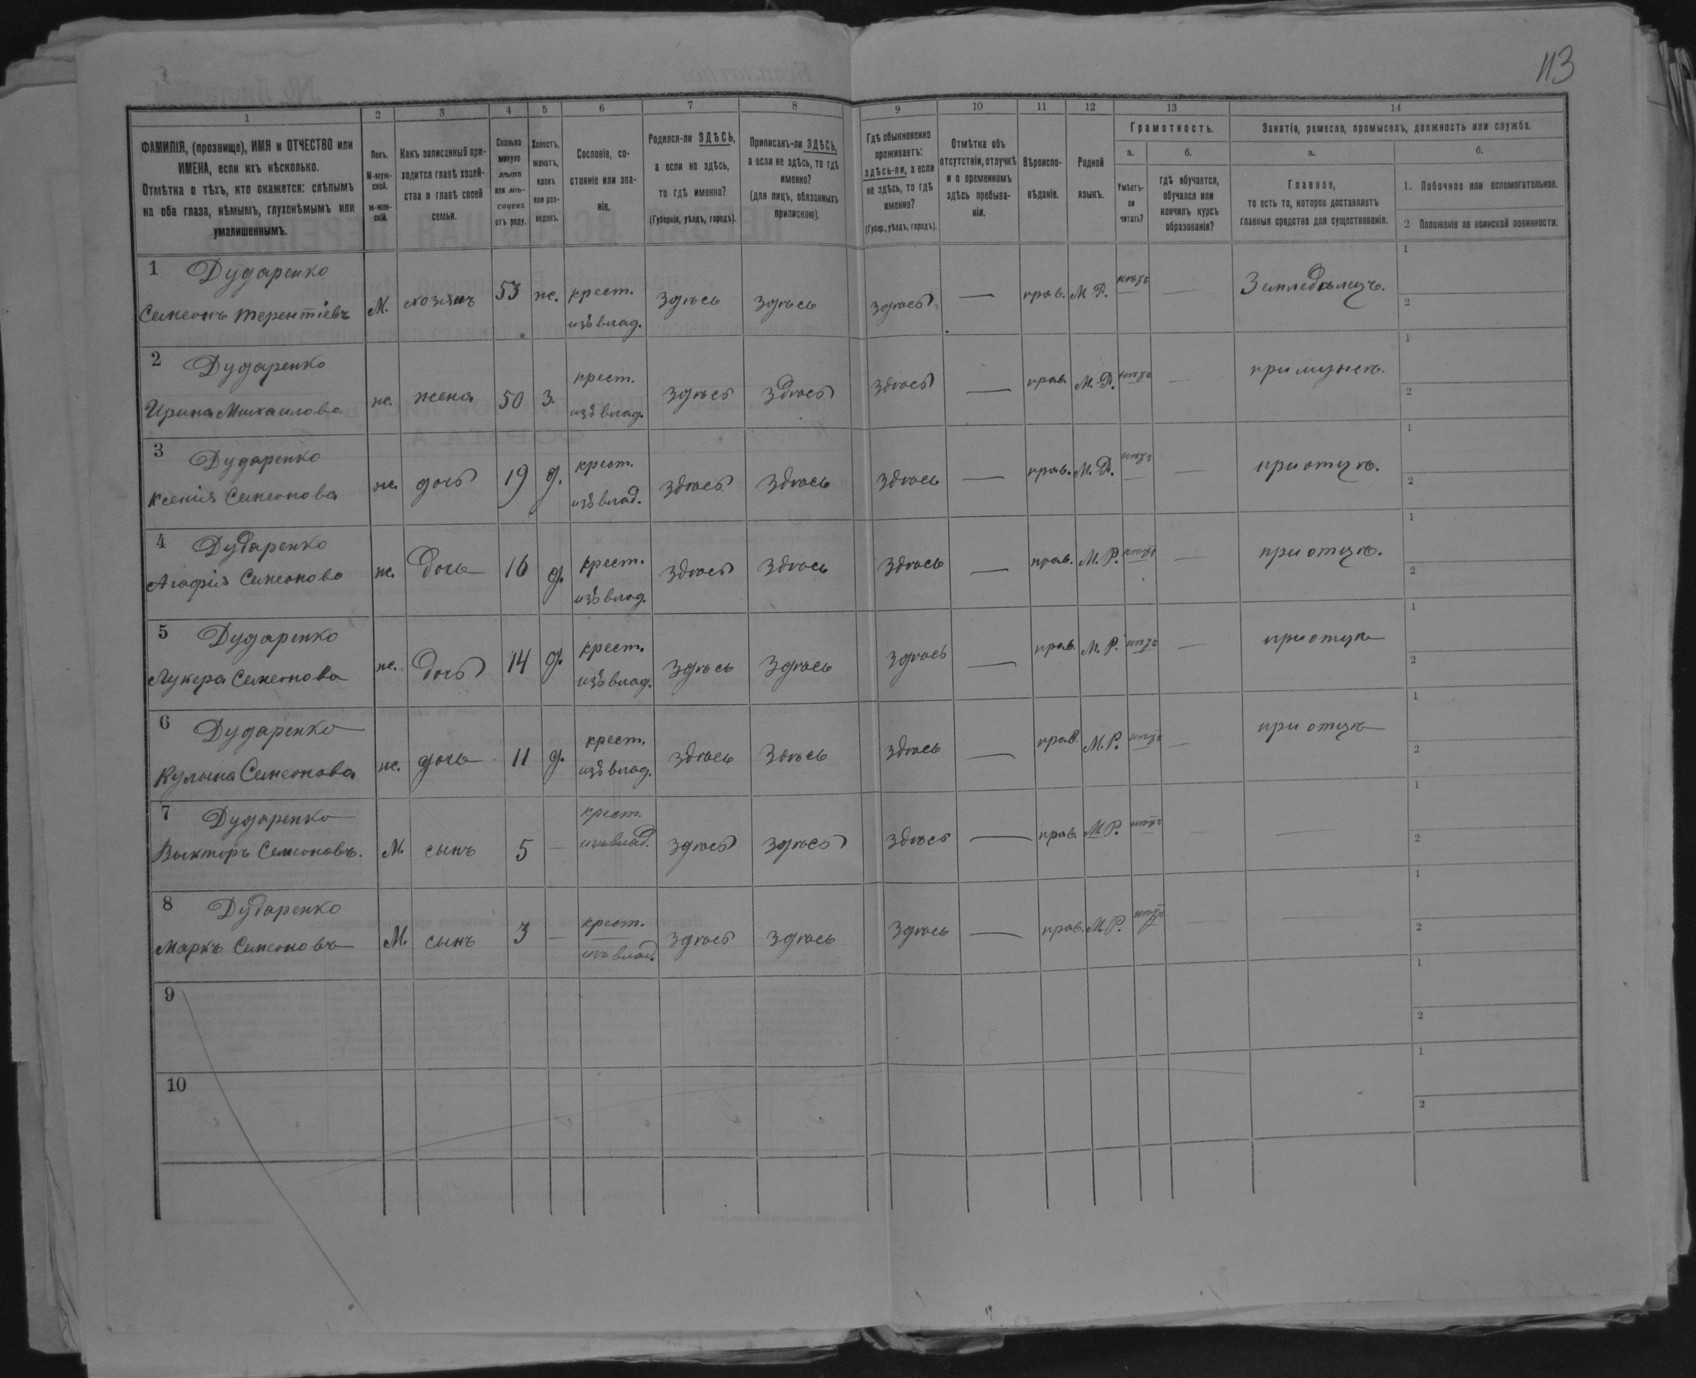 113
1 2 3 4 5 6 7 8 9 10 11 12 13 14
ФАМИЛІЯ, (прозвище), ИМЯ и ОТЧЕСТВО или
ИМЕНА, если ихъ нѣсколько.
Отмѣтка о тѣхъ, кто окажется: слѣпымъ
на оба глаза, нѣмымъ, глухонѣмымъ или
умалишеннымъ.
Полъ.
М-муж-
ской.
ж-жен-
скій.
Какъ записанный при-
ходится главѣ хозяй-
ства и главѣ своей
семьи.
Сколько
минуло
лѣтъ
или мѣ-
сяцевъ
отъ роду.
Холостъ,
женатъ,
вдовъ
или раз-
веденъ.
Сословіе, со-
стояніе или зва-
ніе.
Родился-ли ЗДѢСЬ,
а если не здѣсь,
то гдѣ именно?
(Губернія, уѣздъ, городъ).
Приписанъ-ли ЗДѢСЬ,
а если не здѣсь, то гдѣ
именно?
(для лицъ, обязанныхъ
припискою).
Гдѣ обыкновенно
проживаетъ:
здѣсь-ли, а если
не здѣсь, то гдѣ
именно?
(Губер., уѣздъ, городъ).
Отмѣтка объ
отсутствіи, отлучкѣ
и о временномъ
здѣсь пребыва-
ніи.
Вѣроиспо-
вѣданіе.
Родной
языкъ.
Грамотность.
а.
Умѣетъ-
ли
читать?
б.
Гдѣ обучается,
обучался или
кончилъ курсъ
образованія?
Занятіе, ремесло, промыселъ, должность или служба.
а.
Главное,
то есть то, которое доставляетъ
главныя средства для существованія.
б.
1. Побочное или вспомогательное.
2 Положеніе по воинской повинности.
1 Дударенко
Семеонъ Терентіевъ М. хозяинъ 53 ж. крест.
изъ влад. здѣсь здѣсь здѣсь — прав. М. Р. — Земледѣлецъ. 1 2
2 Дударенко
Ирина Михаилова ж. жена 50 з. крест.
изъ влад. здѣсь здѣсь здѣсь — прав. М. Р. — при мужѣ. 1 2
3 Дударенко
Ксенія Семеонова ж. дочь 19 д. крест.
изъ влад. здѣсь здѣсь здѣсь — прав. М. Р. — при отцѣ. 1 2
4 Дударенко
Агафія Семеонова ж. дочь 16 д. крест.
изъ влад. здѣсь здѣсь здѣсь — прав. М. Р. — при отцѣ. 1 2
5 Дударенко
Лукера Семеонова ж. дочь 14 д. крест.
изъ влад. здѣсь здѣсь здѣсь — прав. М. Р. — при отцѣ 1 2
6 Дударенко
Кулина Семеонова ж. дочь 11 д. крест.
изъ влад. здѣсь здѣсь здѣсь — прав. М. Р. — при отцѣ 1 2
7 Дударенко
Викторъ Семеоновъ. М. сынъ 5 — крест.
изъ влад. здѣсь здѣсь здѣсь — прав. М. Р. — — 1 2
8 Дударенко
Маркъ Семеоновъ М. сынъ 3 — крест.
изъ влад. здѣсь здѣсь здѣсь — прав. М. Р. — — 1 2
9 1 2
10 1 2